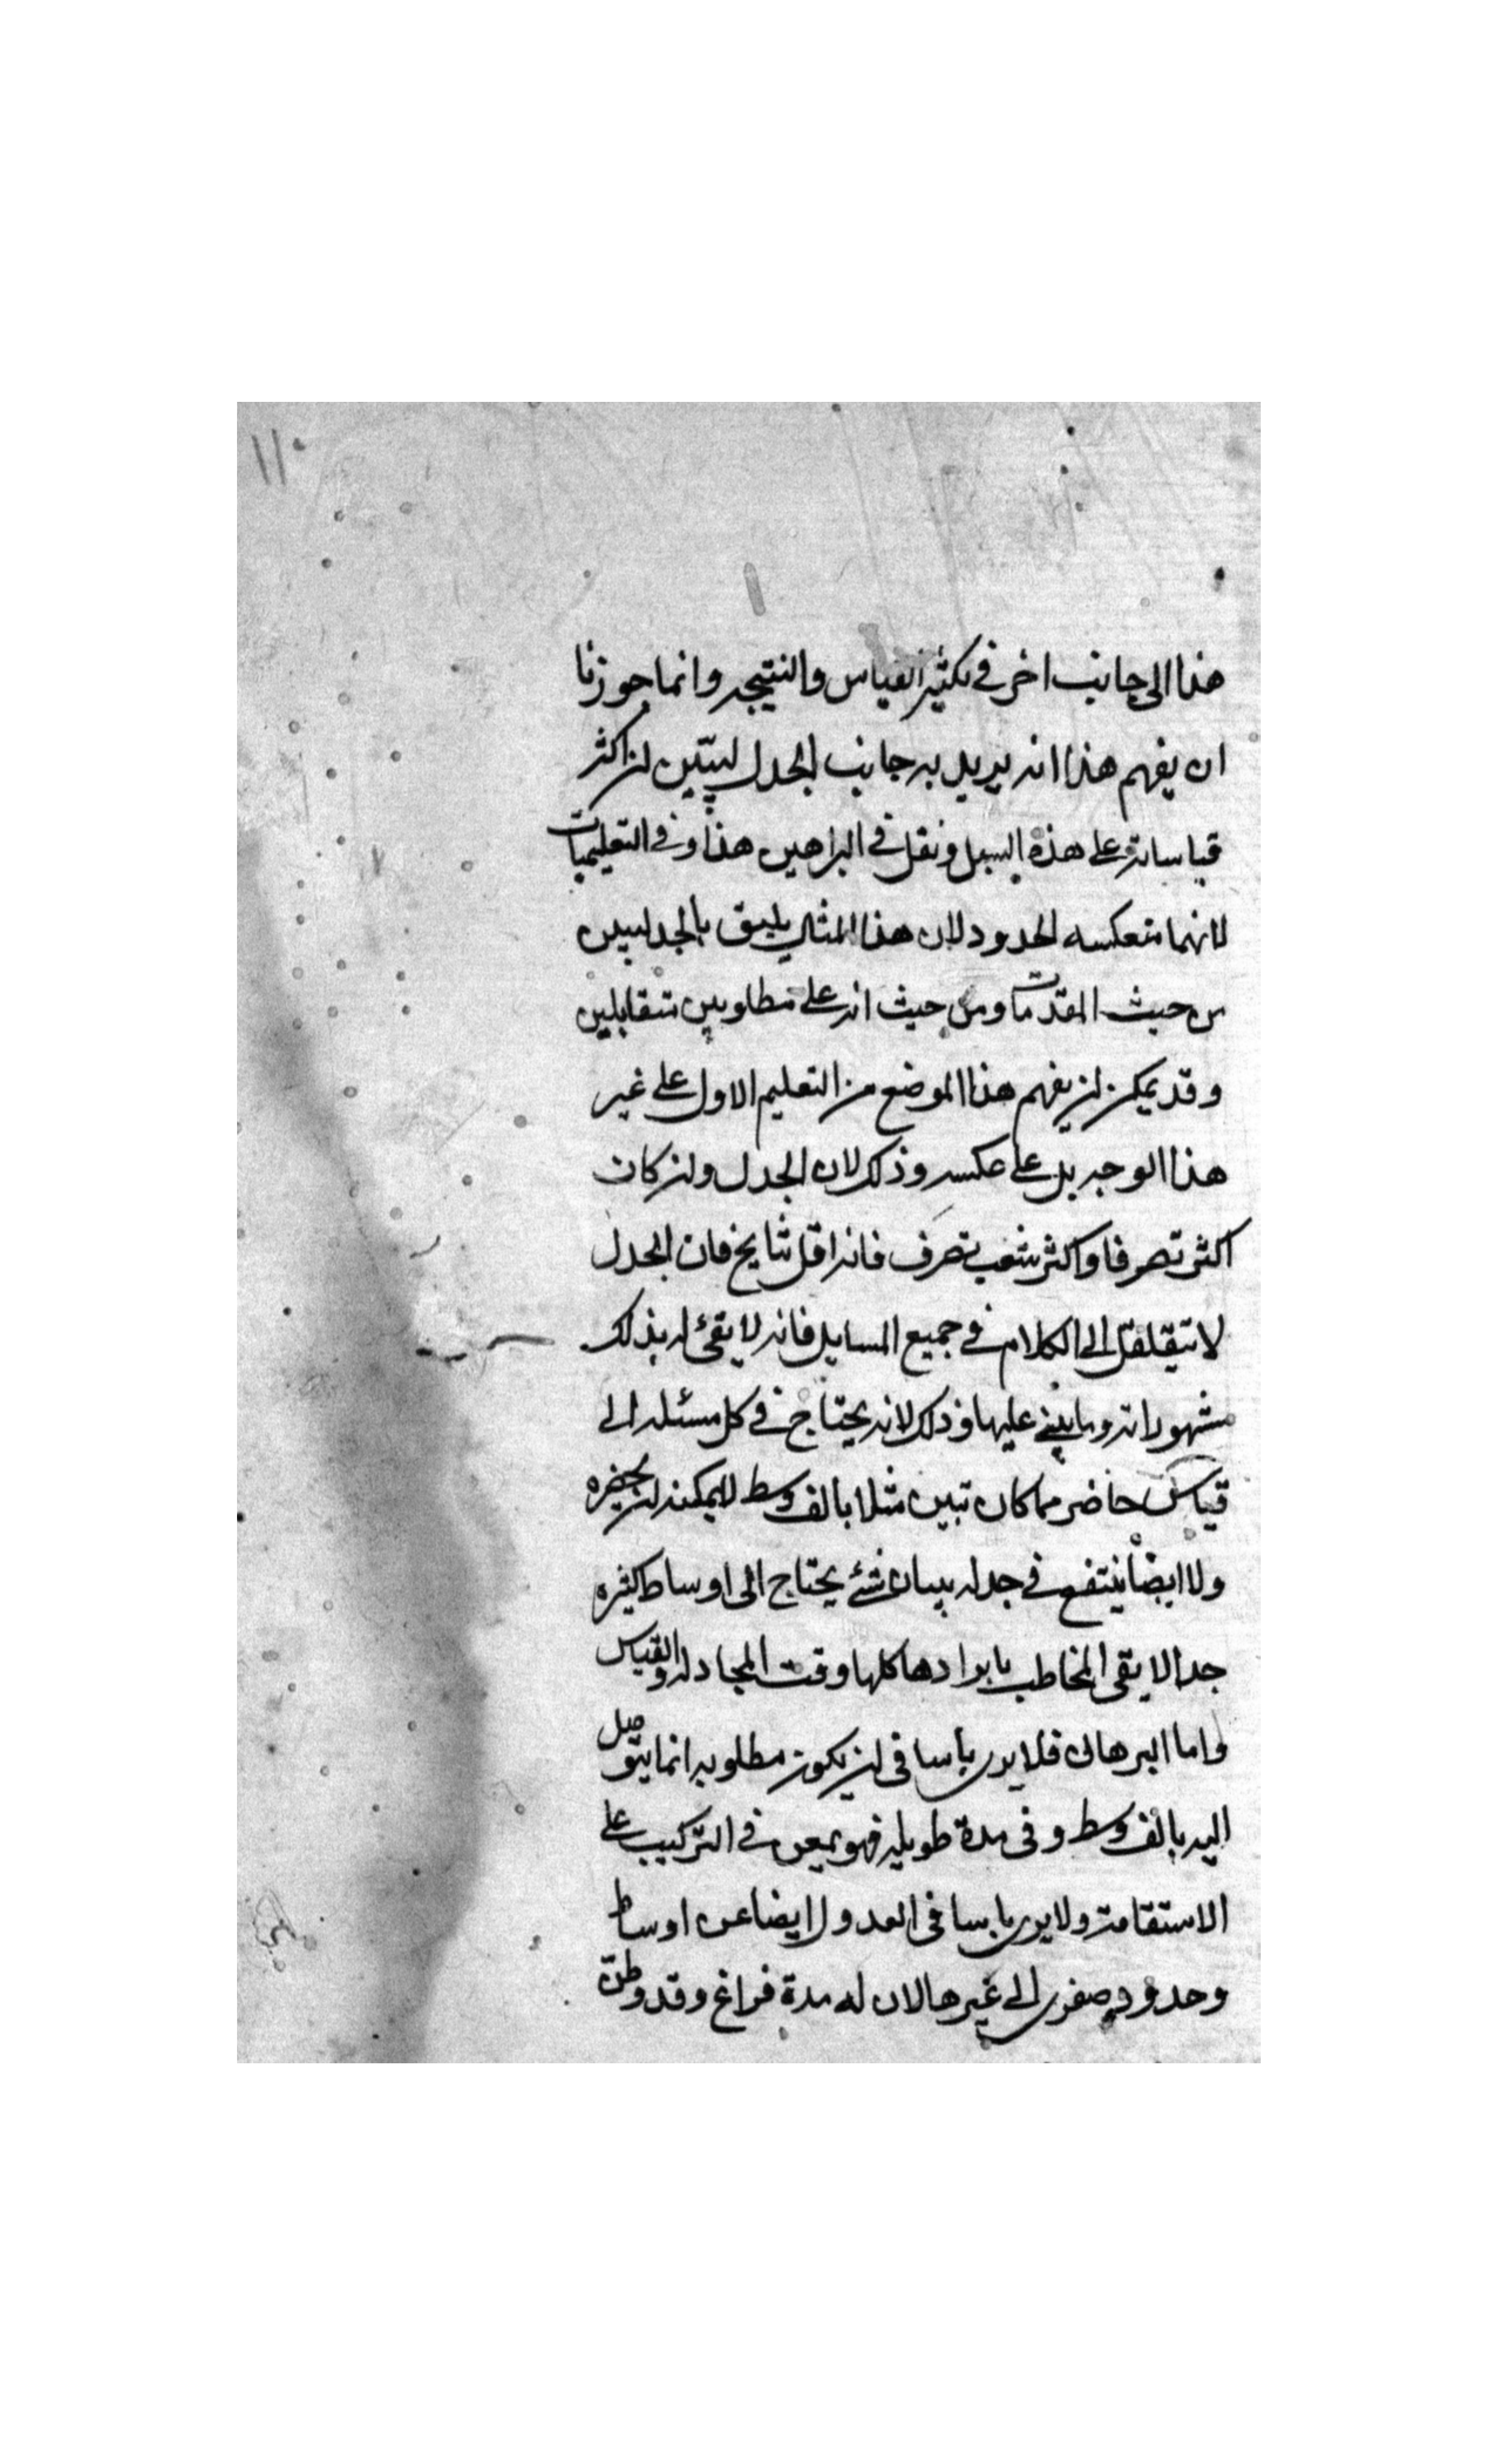 ١١
هذا الى جانب اخر فى تكثير القياس والنتيجه وانما جوزنا
ان يفهم هذا انه يريد به جانب الجدل لتبين ان اكثر
قياساته على هذه السبيل ونقل فى البراهين هذا وفى التعليميات
لانهما متعكسه الحدود لان هذا المثال يليق بالجدليين
من حيث المقدمات ومن حيث انه على مطلوبين متقابلين
وقد يمكن ان يفهم هذا الموضع من التعليم الاول على غير
هذا الوجه بل على عكسه وذلك لان الجدل وان كان
اكثر تصرفا واكثر شعب تصرف فانه اقل نتايج فان الجدل
لا الى الكلام فى جميع المسايل فانه لا يقئ له بذلك
مشهوراته وما يبنى عليها وذلك لانه يحتاج فى كل مسئله الى
قياس حاضر مما كان تبين مثلا بالف وسط لا يمكنه ان يحضره
ولا ايضا ينتفع فى جدله ببيان شئ يحتاج الى اوساط كثيره
جدا لا يقى المخاطب بايرادها كلها وقت المجادله والقياس
واما البرهان فلا يرى بأسا فى ان يكون مطلوبه انما يتوصل
اليه بالف وسط وفى مدة طويله فهو يمعن فى التركيب على
الاستقامه ولا يرى باسا فى العدول ايضا عن اوساط
وحدود صغرى الى غيرها لان له مدة فراغ وقد وطن